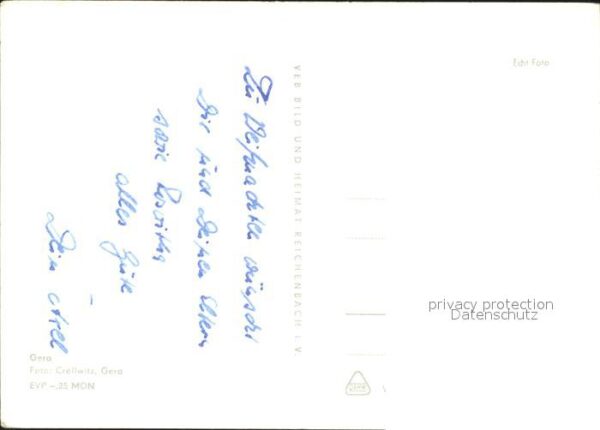 Zu Weihnachten wünscht
Dir und Deinen Eltern
sowie Roswitha
alles Gute
Dein Axel
VEB BILD UND HEIMAT REICHENBACH i. V.
Echt Foto
Gera
Foto: Crellwitz, Gera
EVP –,25 MDN
privacy protection
Datenschutz